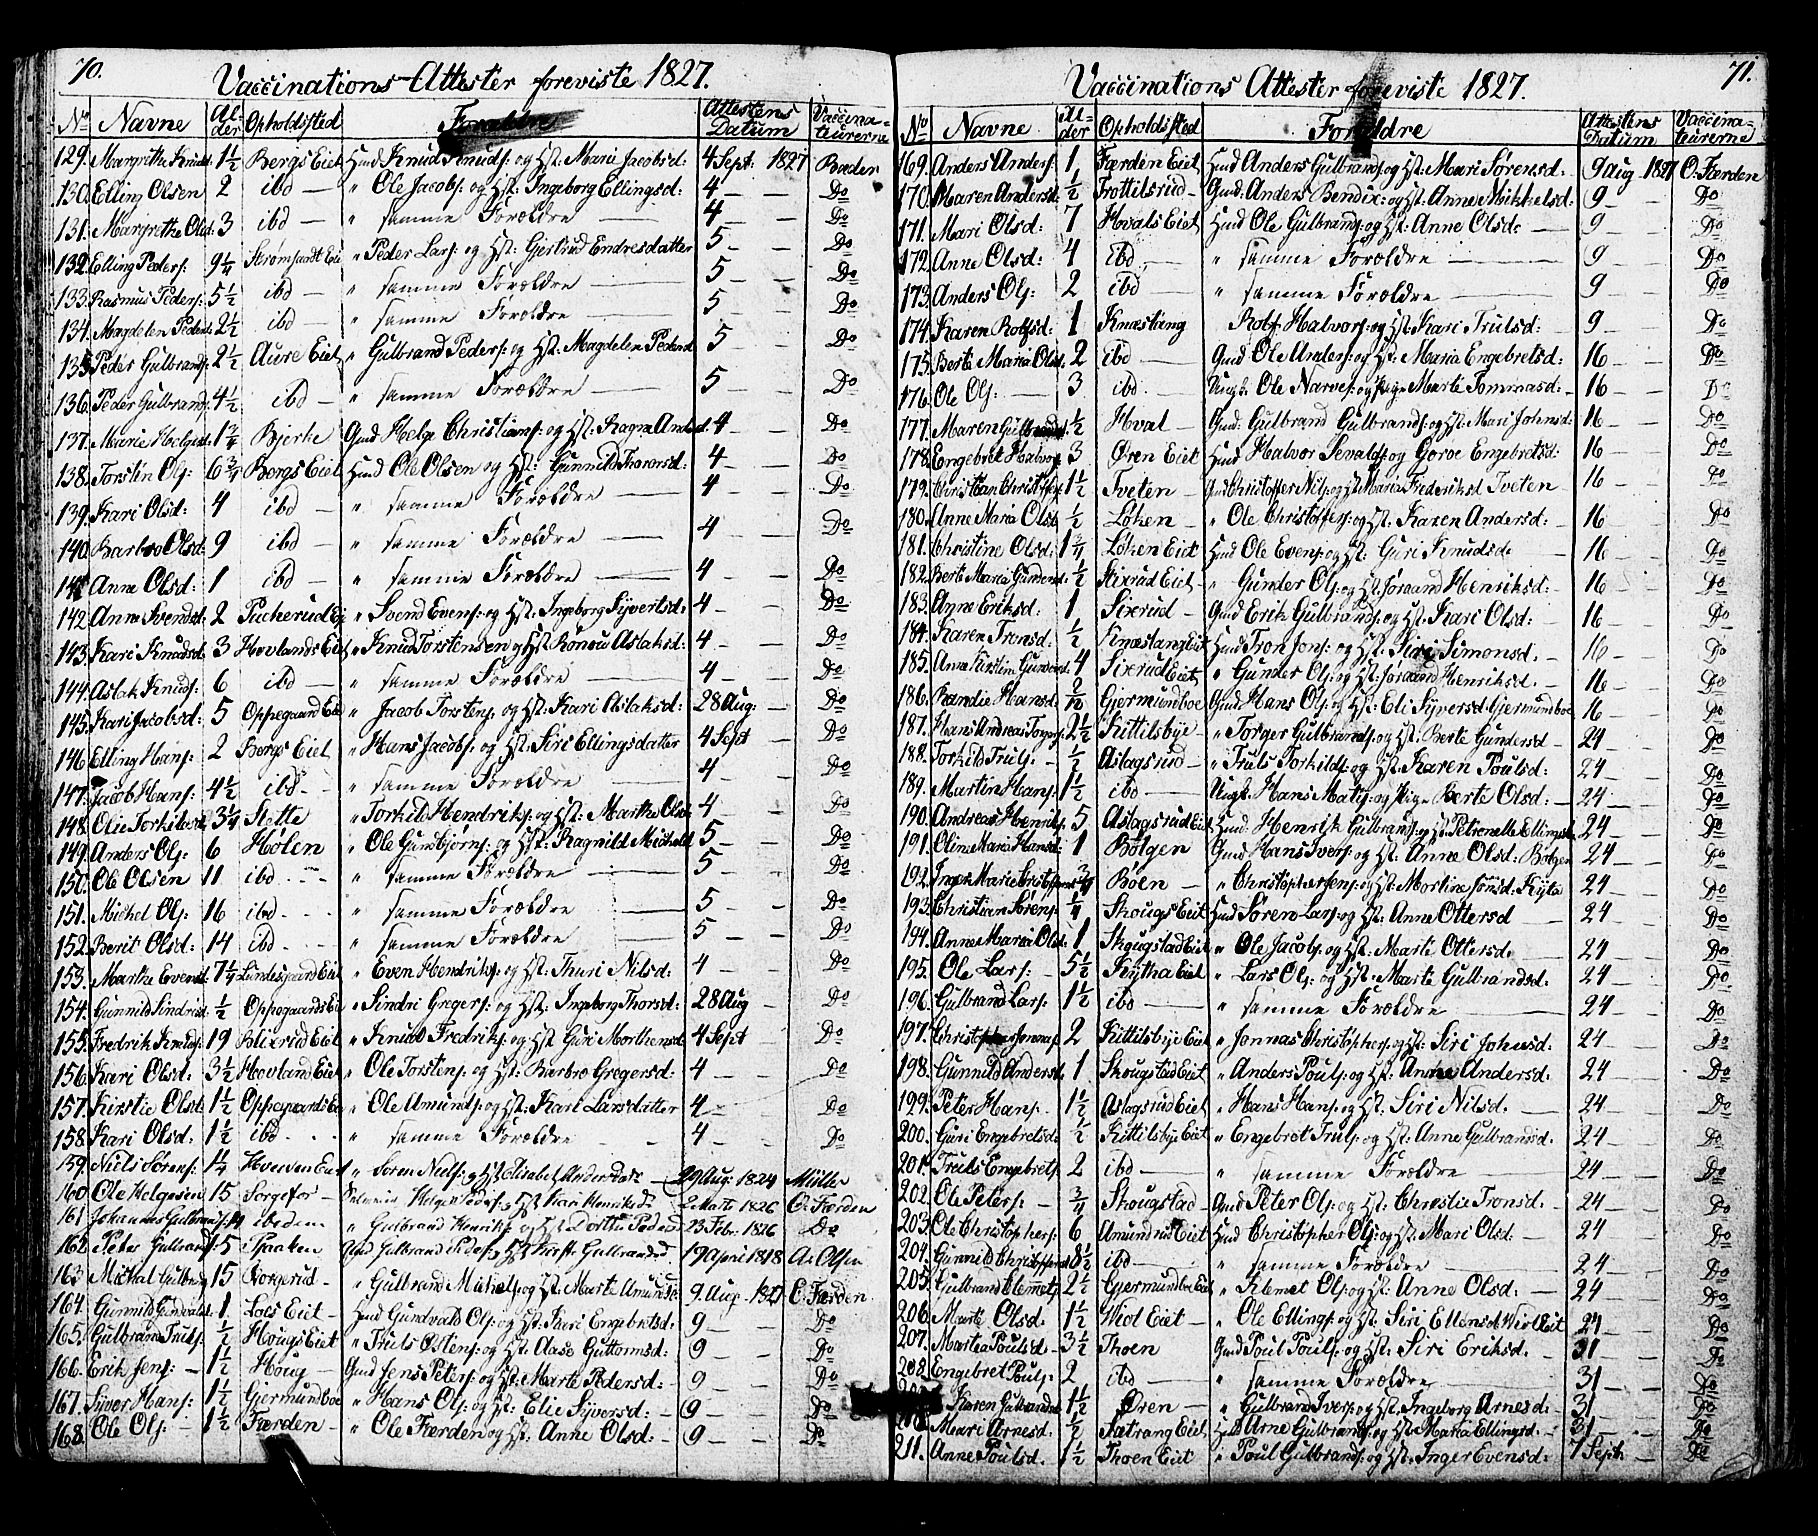 70.
Vaccinations-Attester foreviste 1827.
No Navne Alder Opholdssted Forældre Attestens Datum Vaccinateurerne
129. Margrethe Knudsd: 1½ Bergs Eiet Huusmd Knud Knuds: og Hst: Mari Jacobsd: 4 Sept 1827 Bæder
130. Elling Olsen 2 ibd — " Ole Jacobs: og Hst: Ingeborg Ellingsd: 4 — — Do
131. Margrethe Olsd 3 ibd — " samme Forældre — 4 — — Do
132. Elling Peders: 9¼ Strømsædt Eie " Peder Lars: og Hst: Gjertrud Endresdatter 5 — — Do
133. Rasmus Peders: 5½ ibd — " samme Forældre — 5 — — Do
134. Magdelen Peders: 2½ ibd — " samme Forældre — 5 — — Do
135. Peder Gulbrands: 2½ Aure Eiet " Gulbrand Peders: og Hst: Magdelen Pedersd 5 — — Do
136. Peder Gulbrands: 4½ ibd — " samme Forældre — 5 — — Do
137. Marie Helges 1¾ Bjerke Gmd Helge Christians: og Hst: Ragna Andersd: 4 — — Do
138. Torstin Ols: 6¾ Bergs Eiet Hmd Ole Olsen og Hst: Gunnild Thorersd: 4 — — Do
139. Kari Olsd: 4 ibd — " samme Forældre — 4 — — Do
140. Barbro Olsd: 9 ibd — " samme Forældre — 4 — — Do
141. Anne Olsd: 1 ibd — " samme Forældre — 4 — — Do
142. Anne Svendsd: 2 Pucherud Eie " Svend Evens: og Hst: Ingeborg Syvertsd: 4 — — Do
143. Kari Knudsd: 3 Hovlands Eiet " Knud Torstensen og Hst: Rønou Aslaksd: 4 — — Do
144. Aslak Knuds: 6 ibd — " samme Forældre — 4 — — Do
145. Kari Jacobsd: 5 Oppegaard Eie " Jacob Torstens: og Hst: Kari Aslaksd: 28 Aug: — Do
146. Elling Hans: 2 Bergs Eiet " Hans Jacobs: og Hst: Siri Ellingsdatter 4 Sept — Do
147. Jacob Hans: 4½ ibd — " samme Forældre — 4 — — Do
148. Olie Torkildsd 3¼ Slette " Torkild Hendriks: og Hst: Marthe Olsd: 4 — — Do
149. Anders Ols: 6 Hølen " Ole Gunbjørns: og Hst: Ragnild Michelsd 5 — — Do
150. Ole Olsen 11 ibd " samme Forældre — 5 — — Do
151. Michel Ols: 16 ibd " samme Forældre — 5 — — Do
152. Berit Olsd: 14 ibd " samme Forældre — 5 — — Do
153. Marthe Evensd 7¼ Lindesgaard Eiet " Even Hendriks: og Hst: Thuri Nilsd: 4 — — Do
154. Gunnild Sindresd: ½ Oppegaards Eie " Sindri Gregers: og Hst: Ingeborg Thorsd: 28 Aug — Do
155. Fredrik Knuds: 19 Blixrud Eiet " Knud Fredriks: og Hst Guri Morthensd 4 Sept Do
156. Kari Olsd: 3½ Hovland Eiet " Ole Torstens: og Hst: Barbro Gregersd: 4 — — Do
157. Kirstie Olsd 1½ Oppegaards Eie " Ole Amunds: og Hst: Kari Larsdatter 4 — Do
158. Kari Olsd: 1½ ibd " samme Forældre — 4 — — Do
159. Niels Sørens: 1¼ Hverven Eiet " Søren Niels: og Hst Elisabet Andersdatr — 29 Aug: 1824 Møller
160. Ole Helgesen 15 Sorgefor — Helge Peders: og Hst Kari Henriksd: 2 Marts 1826 O. Færden
161. Johannes Gulbrands: 14 ibidem " Gulbrand Henriks: og Hst Dorthe Pedersd 23 Febr: 1826 Do
162. Peter Gulbrands: 5 Spaaken Gmd Gulbrand Peders: og Hst Kirsti Gulbrandsd. 19 April 1818 A. Olsen
163. Michal Gulbrands 15 Borgerud — " Gulbrand Michels: og Hst: Marte Amundsd: 9. Aug. 1827 O. Færden
164. Gunnild Gundvalds: 1. Loes Eiet — Hmd Gundvald Ols: og Hst: Kari Engebretsd: 9 — — Do
165. Gulbrand Truls: ½ Hougs Eiet " Truls Østens: og Hst: Aase Guttormsd: 9 — — Do
166. Erik Jens: — 1½ Houg — Gmd Jens Peters: og Hst: Marte Pedersd: — 9 — — Do
167. Syver Hans: 1½ Gjermundboe " Hans Ols: og Hst: Elie Syversd: — 9 — — Do
168. Ole Ols: — 1½ Færden — " Ole Færden og Hst: Anne Olsd: — 9 — — Do
71.
Vaccinations Attester foreviste 1827.
No Navne Alder Opholdssted Forældre Attestens Datum Vaccinateurerne
169. Anders Anders: 1 Færden Eiet Hmd Anders Gulbrands: og Hst: Mari Sørensd: 9 Aug 1827 O. Færden
170. Maren Andersd: ½ Frottilsrud — Gmd: Anders Bendix: og Hst: Anne Mikkelsd: 9 — Do
171. Mari Olsd: 7 Hvals Eiet Hmd Ole Gulbrands: og Hst: Anne Olsd: — 9 — Do
172. Anne Olsd: 4 ibd — " samme Forældre — 9 — Do
173. Anders Ols: 2 ibd — " samme Forældre — 9 — Do
174. Karen Rolfsd: 1 Knæstang Rolf Halvors: og Hst: Kari Trulsd: 9 — Do
175. Berte Maria Olsd: 2 ibd — Gmd Ole Anders: og Hst: Maria Engebretsd: 16 — Do
176. Ole Ols: — 3 ibd. — Ungk: Ole Narves: og Pige Marte Tommasd: — 16 — Do
177. Maren Gulbrandsd: ½ Hval — Gmd: Gulbrand Gulbrands: og Hst: Mari Johnsd: 16 — Do
178. Engebret Halvors: 3 Øren Eiet Hmd Halvor Sevalds: og Goroe Engebretsd: 16 — Do
179. Christian Christoffers: 1½ Tveten — Gmd Christoffer Nils: og Hst Maria Frederiksd Tveten — 16 — Do
180. Anne Maria Olsd ½ Løken — " Ole Christoffers: og Hst: Karen Andersd: — 16 — Do
181. Christine Olsd: 1¾ Løken Eiet Hmd Ole Evens: og Hst: Guri Knudsd: 16 — Do
182. Berte Maria Gundersd: ½ Sixrud Eiet — " Gunder Ols: og Hst: Joraand Henriksd: 16 — Do
183. Anne Eriksd: 1 Sixrud — Gmd Erik Gulbrands: og Hst: Kari Olsd: 16 — Do
184. Karen Tronsd: ½ Knæstang Eiet Hmd Tron Jons: og Hst: Siri Simonsd. — 16 — Do
185. Anne Kirstin Gundersd: 4 Sixrud Eiet " Gunder Ols: og Hst: Joraand Henriksd. — 16 — Do
186. Randie Hansd: Gjermundboe Gmd Hans Ols: og Hst: Eli Syversd. Gjermundboe 16 — Do
187. Hans Andreas Torgers: 2½ Kittilsbye " Torger Gulbrands: og Hst: Berte Gundersd — 24 — Do
188. Torkild Truls: — ½ Aslagsrud — " Truls Torkilds: og Hst: Karen Poulsd: 24 — Do
189. Martin Hans: 1½ ibd — Ungk: Hans Mats: og Pige Berte Olsd: — 24 — Do
190. Andreas Henriks: 5 Aslagsrud Eiet Hmd: Henrik Gulbrans: og Hst: Petronelle Ellingsd: 24 — Do
191. Oline Maria Hansd: 1 Bølgen Gmd Hans Ivers: og Hst: Anne Olsd: Bølgen 24 — Do
192. Inger Marie Christophersd ¾ Bøen — " Christopher Jens: og Hst: Mortine Jonsd: Kyta 24 — Do
193. Christian Sørens: ¼ Skougs Eiet Hmd Søren Lars: og Hst: Anne Ottersd 24 — Do
194. Anne Maria Olsd: 1 Skougstad Eiet " Ole Jacobs: og Hst: Marte Ottersd: 24 — Do
195. Ole Lars: — 5½ Kytha Eiet " Lars Ols: og Hst: Marte Gulbrandsd: 24 — Do
196. Gulbrand Lars: 1½ ibd — " samme Forældre — 24 — Do
197. Christopher Jonnas: 2 Kittilsbye Eiet " Jonnas Christophers: og Hst: Siri Johnsd: 24 — Do
198. Gunnild Andersd: 1 Skougstad Eiet " Anders Pouls: og Hst: Anne Andersd: 24 — Do
199. Peter Hans: — 1½ Aslagsrud Eiet " Hans Hans: og Hst: Siri Nilsd. — 24 — Do
200. Guri Engebretsd: ½ Kittilsbye Eiet " Engebret Truls: og Hst: Anne Gulbrandsd: 24 — Do
201. Truls Engebrets: 2 ibd — " samme Forældre 24 — Do
202. Ole Peters: — ¾ Skougstad — Gmd Peter Ols: og Hst: Christie Tronsd: 24 — Do
203. Ole Christophers: 6 Amundrud Eiet Hmd Christopher Ols: og Hst: Mari Olsd: 24 — Do
204. Gunnild Christophersd 8½ ibd — " samme Forældre — 24 — Do
205. Gulbrand Clemets: 2½ Gjermundboe Eiet " Klemet Ols: og Hst: Anne Olsd: 24 — Do
206. Marte Olsd: 1½ Wiol Eiet " Ole Ellings: og Hst: Siri Ellensd: Wiol Eiet 24 — Do
207. Martea Poulsd. 3½ Thoen Gmd Poul Pouls: og Hst: Siri Eriksd. — 31 Do
208. Engebret Pouls: 2 ibd — " samme Forældre — 31 — Do
Karen Gulbrandsd 1½ Øren — " Gulbrand Ivers: og Hst: Ingeborg Arnesd: 31 — Do
Mari Arnesd: ½ Sætrang Eiet Hmd Arne Gulbrands: og Hst: Maria Ellingsd: 31 — Do
211. Anne Poulsd. 1½ Thoen Eiet " Poul Gulbrands: og Hst: Inger Evensd: 7 Sept: — Do